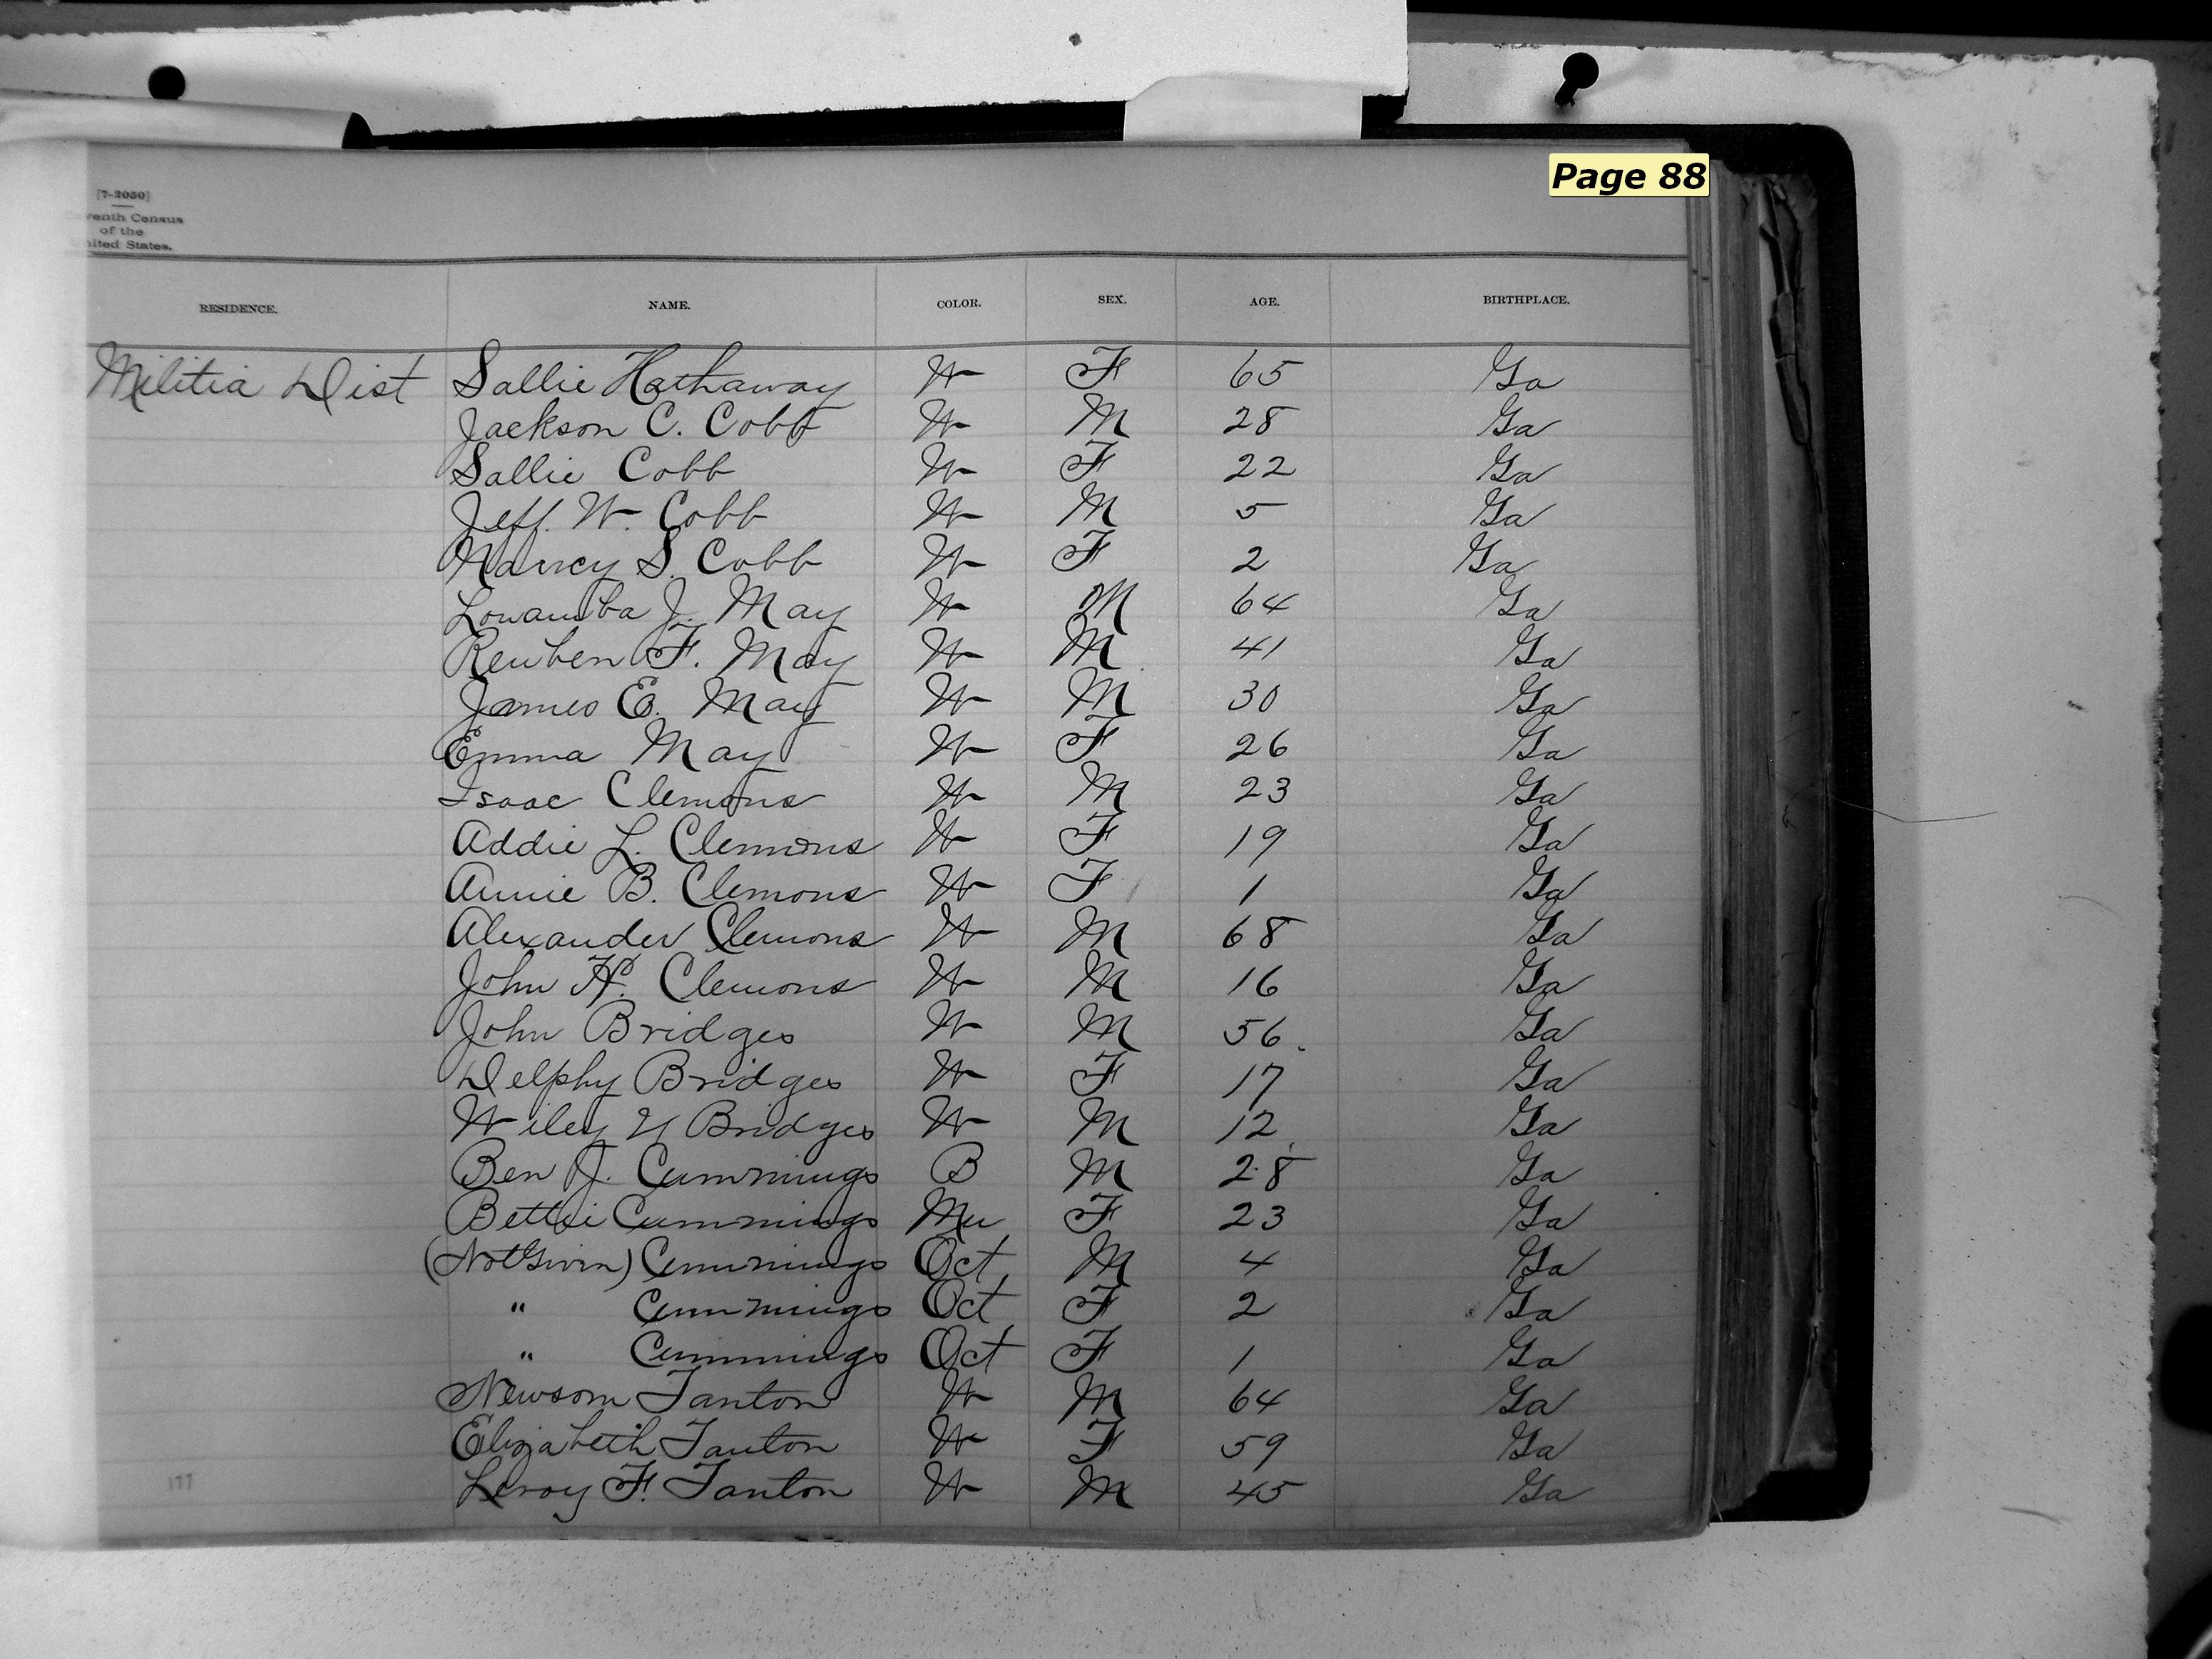 Page 88
[7-2050]
venth Census
of the
nited States.
RESIDENCE. NAME. COLOR. SEX. AGE. BIRTHPLACE.
Militia Dist Sallie Hathaway W F 65 Ga
Jackson C. Cobb W M 28 Ga
Sallie Cobb W F 22 Ga
Jeff. W. Cobb W M 5 Ga
Nancy S. Cobb W F 2 Ga
J. May W M 64 Ga
Reuben F. May W M 41 Ga
James E. May W M 30 Ga
Emma May W F 26 Ga
Isaac Clemons W M 23 Ga
Addie L. Clemons W F 19 Ga
Annie B. Clemons W F 1 Ga
Alexander Clemons W M 68 Ga
John H. Clemons W M 16 Ga
John Bridges W M 56 Ga
Delphy Bridges W F 17 Ga
Wiley Y Bridges W M 12 Ga
Ben J. Cummings B M 28 Ga
Bettie Cummings Mu F 23 Ga
(Not Given) Cummings Oct M 4 Ga
" Cummings Oct F 2 Ga
" Cummings Oct F 1 Ga
Newsom Tanton W M 64 Ga
Elizabeth Tanton W F 59 Ga
Leroy F. Tanton W M 45 Ga
177